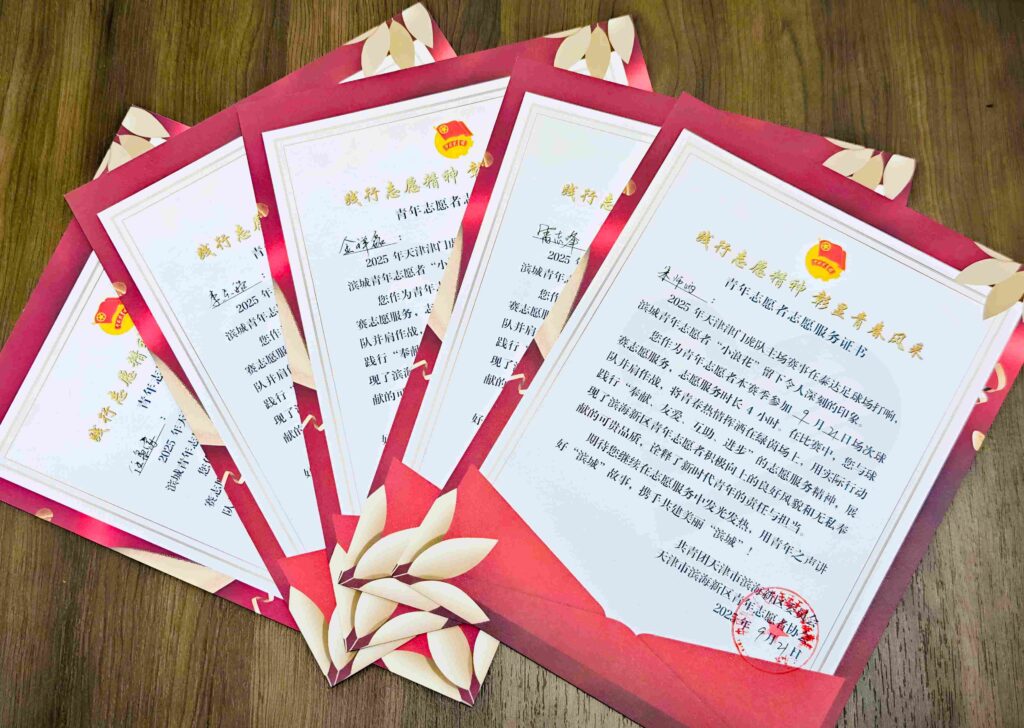 践行志愿精神
青年志
2025年
滨城青年志
您
赛志愿
队
践行志愿
青
2025年
滨城青年志
您作
赛志愿
队并肩
践行
现了
献的
践行志愿精神
青年志愿者志
金祥淼：
2025年天津津门虎
滨城青年志愿者“小
您作为青年
赛志愿服务，志
队并肩作战，
践行“奉献
现了滨海
献的可
好
践行志愿
青
2025年
滨城青年志
您作
赛志愿
队并
践行
现了
献的
好
践行志愿精神 彰显青春风采
青年志愿者志愿服务证书
：
2025年天津津门虎队主场赛事在泰达足球场打响，
滨城青年志愿者“小浪花”留下令人深刻的印象。
您作为青年志愿者本赛季参加 9 月21日场次球
赛志愿服务，志愿服务时长 4 小时，在比赛中，您与球
队并肩作战，将青春热情挥洒在绿茵场上，用实际行动
践行“奉献、友爱、互助、进步”的志愿服务精神，展
现了滨海新区青年志愿者积极向上的良好风貌和无私奉
献的可贵品质，诠释了新时代青年的责任与担当。
期待您继续在志愿服务中发光发热，用青年之声讲
好“滨城”故事，携手共建美丽“滨城”！
共青团天津市滨海新区委员会
天津市滨海新区青年志愿者协会
2025年 9月21日